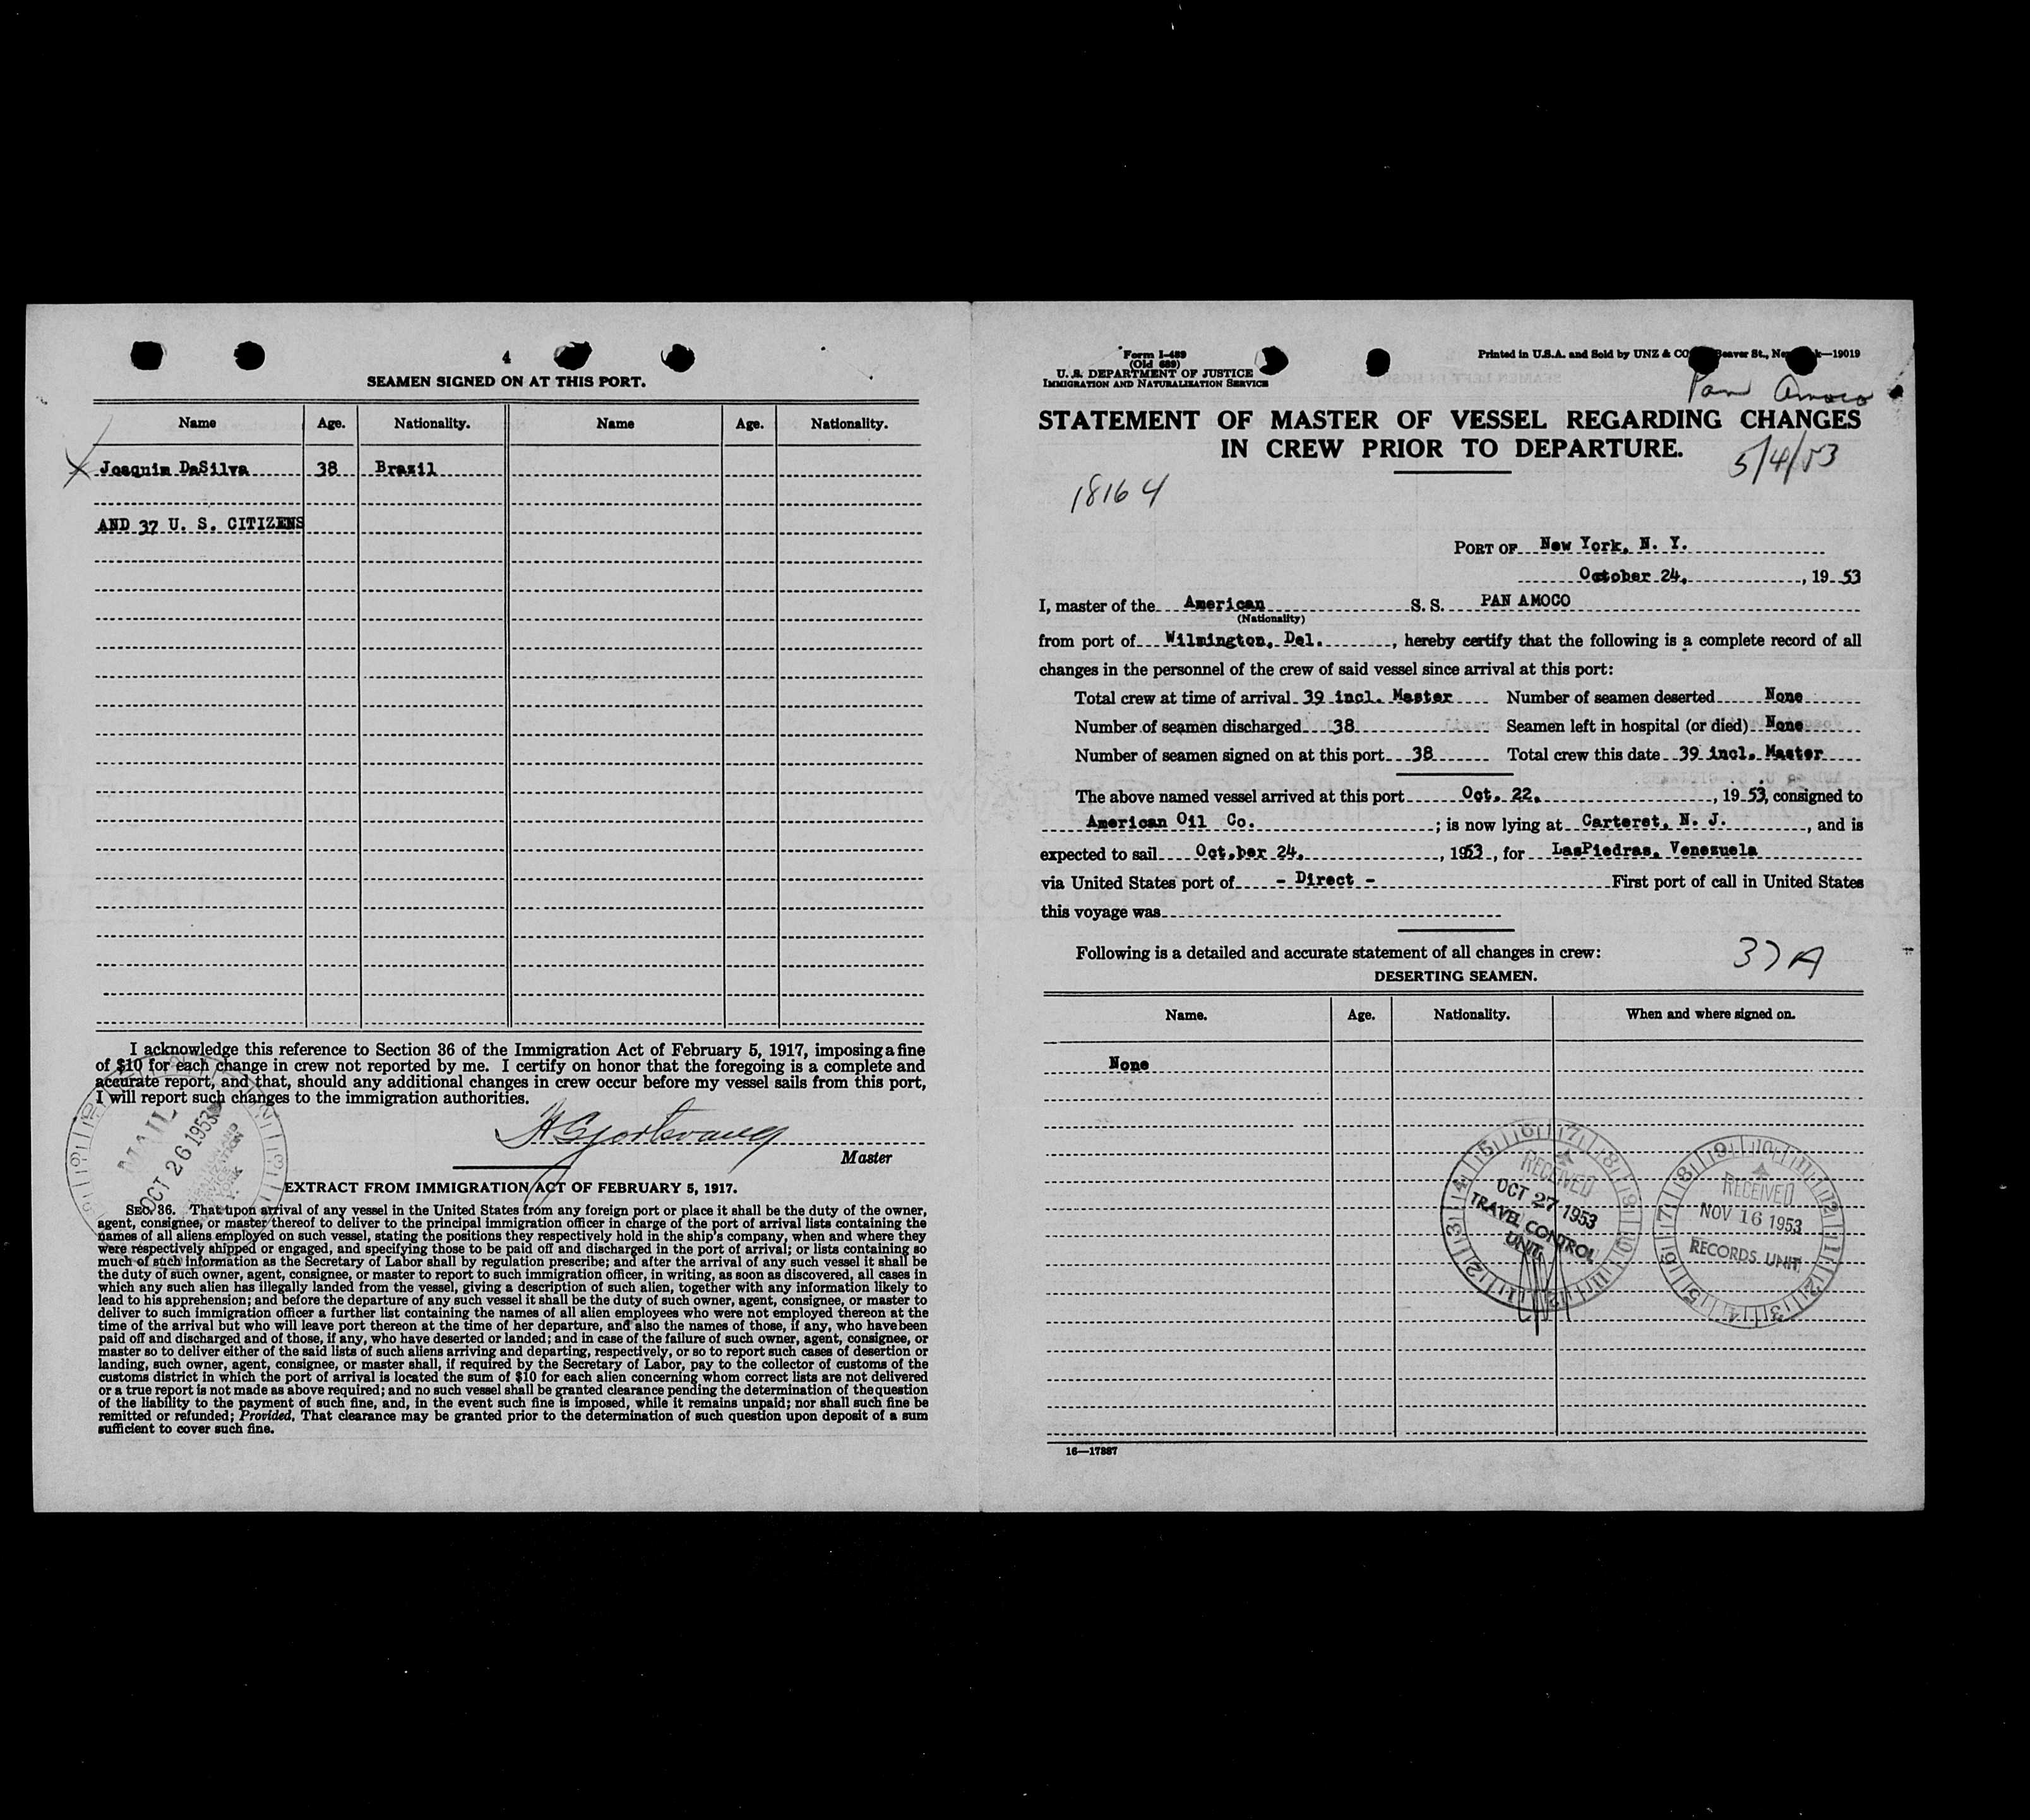 4
SEAMEN SIGNED ON AT THIS PORT.
Name Age. Nationality. Name Age. Nationality.
Joaquim DaSilva 38 Brazil
AND 37 U. S. CITIZENS
I acknowledge this reference to Section 36 of the Immigration Act of February 5, 1917, imposing a fine
of $10 for each change in crew not reported by me. I certify on honor that the foregoing is a complete and
accurate report, and that, should any additional changes in crew occur before my vessel sails from this port,
I will report such changes to the immigration authorities.
MAIL
OCT 26 1953
Master
EXTRACT FROM IMMIGRATION ACT OF FEBRUARY 5, 1917.
SEC. 36. That upon arrival of any vessel in the United States from any foreign port or place it shall be the duty of the owner,
agent, consignee, or master thereof to deliver to the principal immigration officer in charge of the port of arrival lists containing the
names of all aliens employed on such vessel, stating the positions they respectively hold in the ship's company, when and where they
were respectively shipped or engaged, and specifying those to be paid off and discharged in the port of arrival; or lists containing so
much of such information as the Secretary of Labor shall by regulation prescribe; and after the arrival of any such vessel it shall be
the duty of such owner, agent, consignee, or master to report to such immigration officer, in writing, as soon as discovered, all cases in
which any such alien has illegally landed from the vessel, giving a description of such alien, together with any information likely to
lead to his apprehension; and before the departure of any such vessel it shall be the duty of such owner, agent, consignee, or master to
deliver to such immigration officer a further list containing the names of all alien employees who were not employed thereon at the
time of the arrival but who will leave port thereon at the time of her departure, and also the names of those, if any, who have been
paid off and discharged and of those, if any, who have deserted or landed; and in case of the failure of such owner, agent, consignee, or
master so to deliver either of the said lists of such aliens arriving and departing, respectively, or so to report such cases of desertion or
landing, such owner, agent, consignee, or master shall, if required by the Secretary of Labor, pay to the collector of customs of the
customs district in which the port of arrival is located the sum of $10 for each alien concerning whom correct lists are not delivered
or a true report is not made as above required; and no such vessel shall be granted clearance pending the determination of the question
of the liability to the payment of such fine, and, in the event such fine is imposed, while it remains unpaid; nor shall such fine be
remitted or refunded; Provided, That clearance may be granted prior to the determination of such question upon deposit of a sum
sufficient to cover such fine.
Form I-489
(Old 689)
U. S. DEPARTMENT OF JUSTICE
IMMIGRATION AND NATURALIZATION SERVICE
Printed in U.S.A. and Sold by UNZ & CO Beaver St., Ne k—19019
Pan Amoco
STATEMENT OF MASTER OF VESSEL REGARDING CHANGES
IN CREW PRIOR TO DEPARTURE.
5/4/53
18164
PORT OF New York, N. Y.
October 24, , 19 53
I, master of the American S. S. PAN AMOCO
(Nationality)
from port of Wilmington, Del. , hereby certify that the following is a complete record of all
changes in the personnel of the crew of said vessel since arrival at this port:
Total crew at time of arrival 39 incl. Master Number of seamen deserted None
Number of seamen discharged 38 Seamen left in hospital (or died) None
Number of seamen signed on at this port 38 Total crew this date 39 incl. Master
The above named vessel arrived at this port Oct. 22, , 19 53, consigned to
American Oil Co. ; is now lying at Carteret, N. J. , and is
expected to sail Oct.ber 24, , 1953 , for LasPiedras, Venezuela
via United States port of - Direct - First port of call in United States
this voyage was
Following is a detailed and accurate statement of all changes in crew:
37A
DESERTING SEAMEN.
Name. Age. Nationality. When and where signed on.
None
RECEIVED
OCT 27 1953
TRAVEL CONTROL
UNIT
RECEIVED
NOV 16 1953
RECORDS UNIT
16—17887